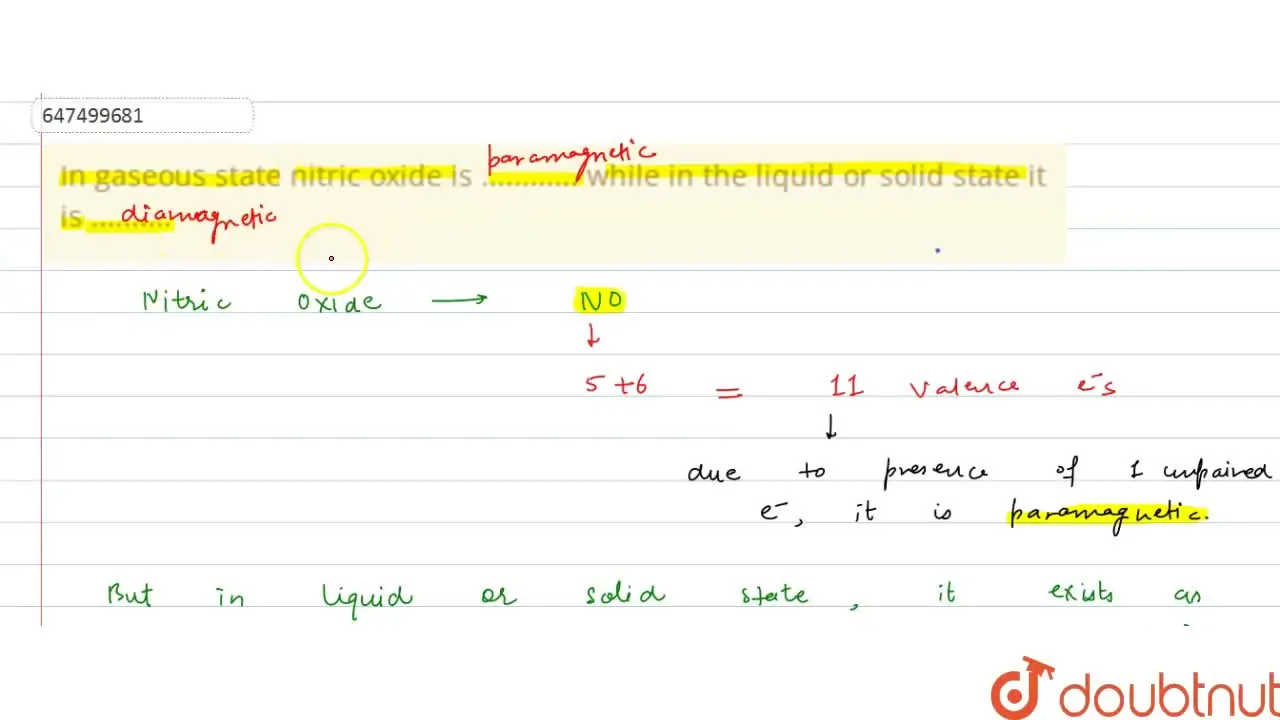 647499681
paramagnetic
In gaseous state nitric oxide is ............ while in the liquid or solid state it
is ........... diamagnetic
Nitric Oxide → NO
↓
5 + 6 = 11 valence e⁻s
↓
due to presence of 1 unpaired
e⁻, it is paramagnetic.
But in liquid or solid state, it exists as
doubtnut